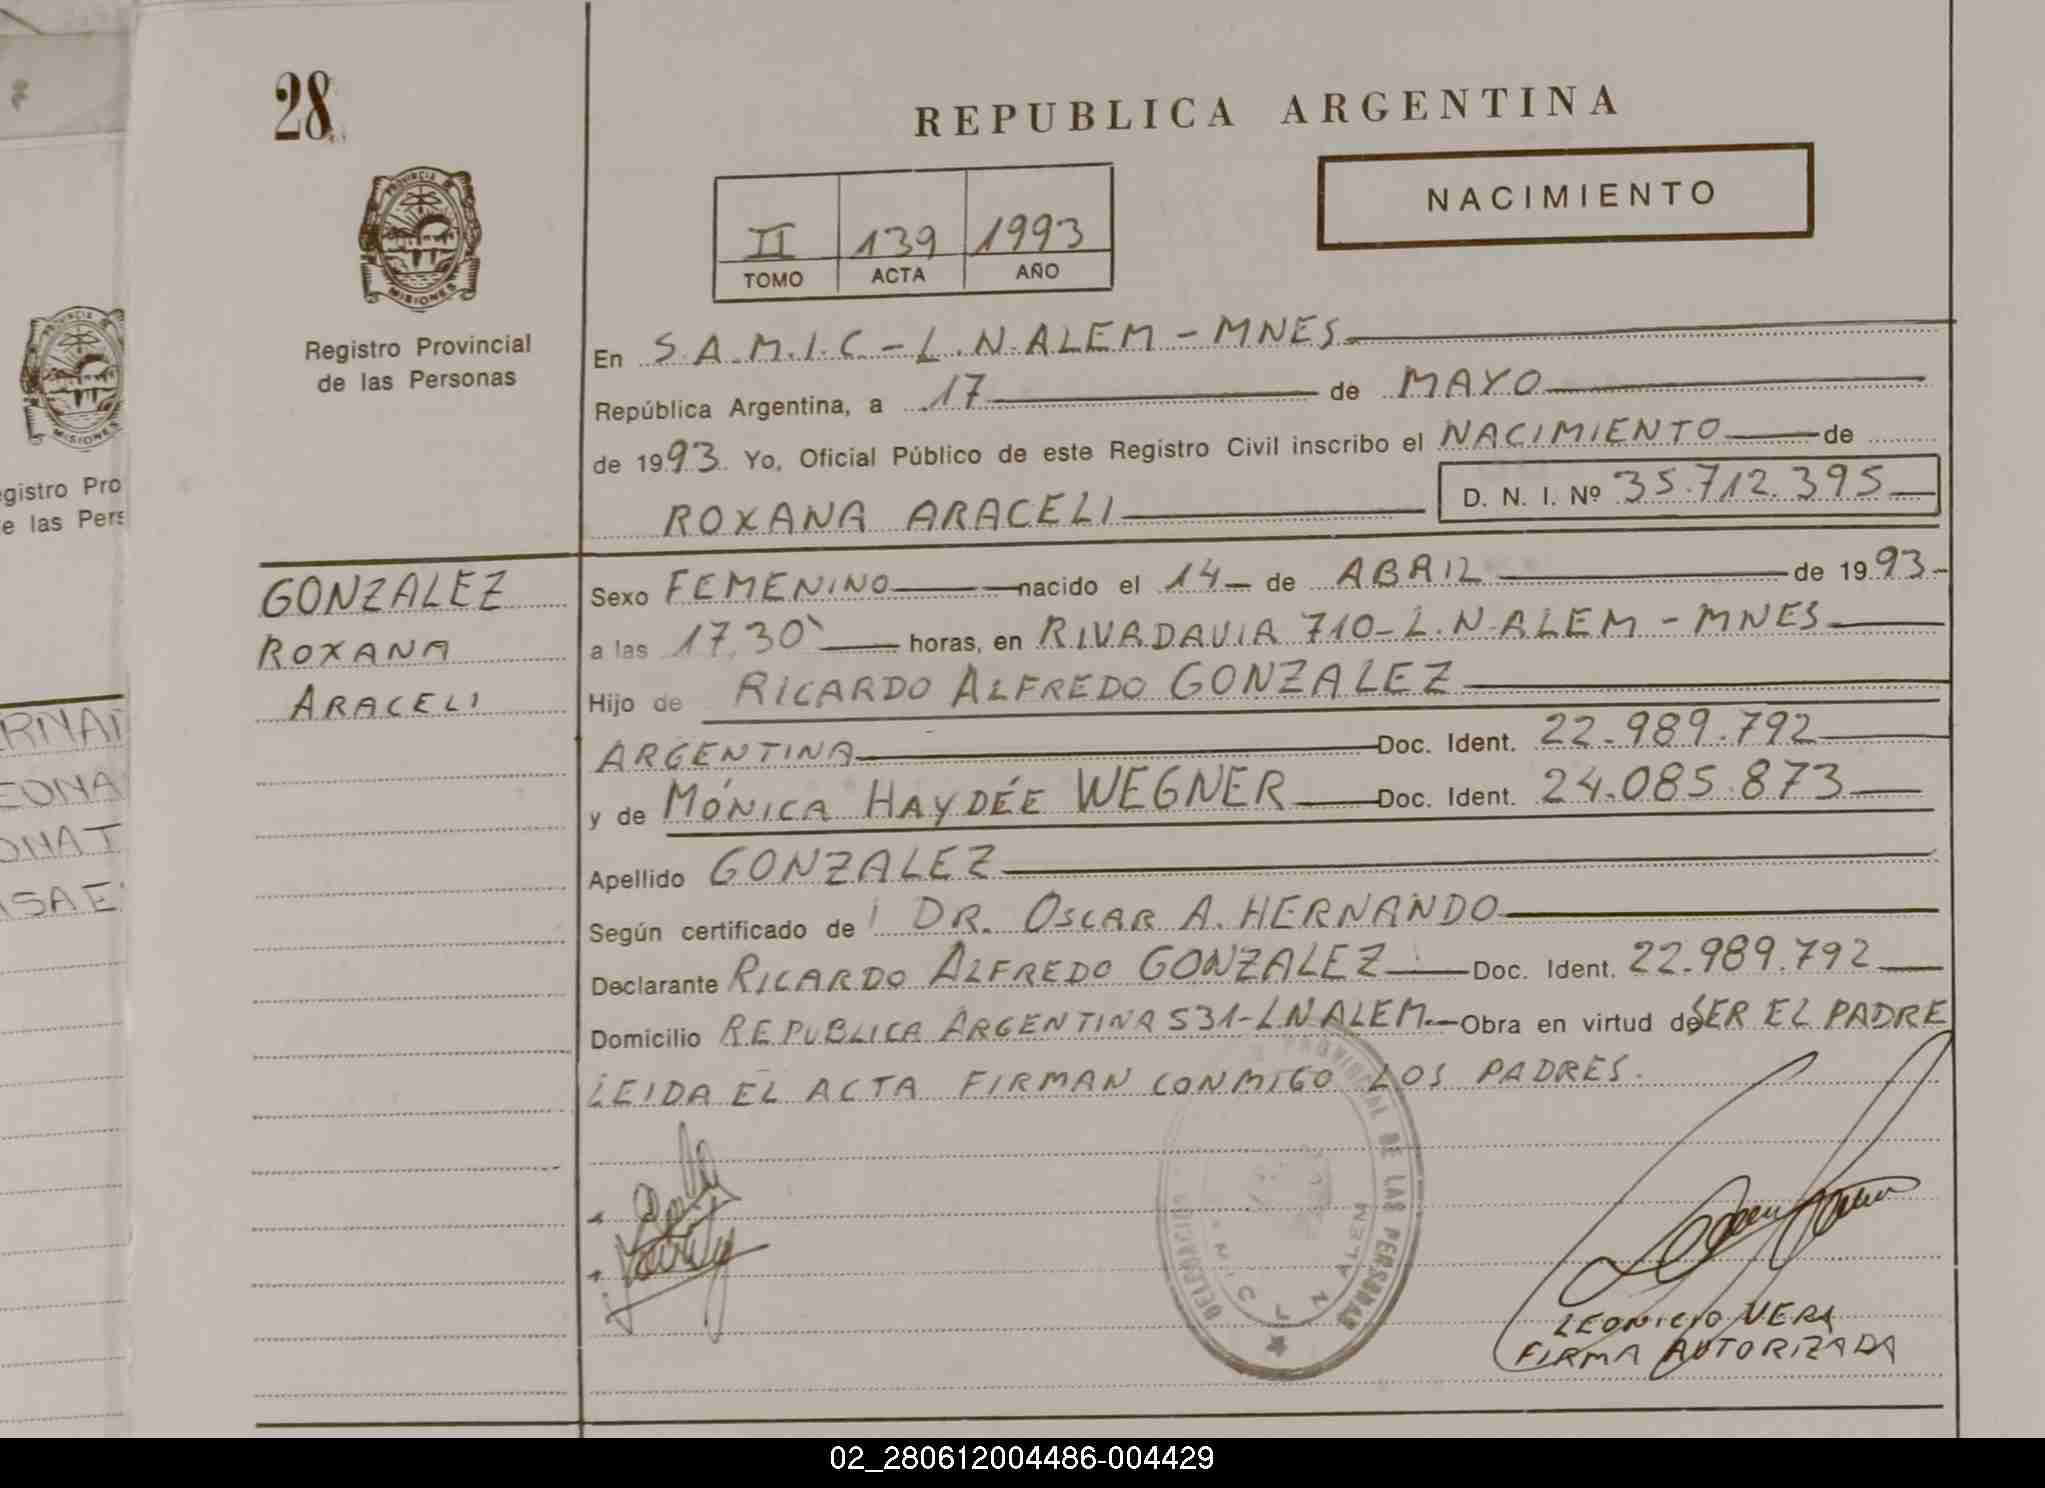 28
REPUBLICA ARGENTINA
NACIMIENTO
PROVINCIA DE
MISIONES
II 139 1993
TOMO ACTA AÑO
Registro Provincial
de las Personas
En S.A.M.I.C - L.N.ALEM - MNES
República Argentina, a 17 de MAYO
de 1993. Yo, Oficial Público de este Registro Civil inscribo el NACIMIENTO de
ROXANA ARACELI D. N. I. Nº 35.712.395
GONZALEZ
ROXANA
ARACELI
Sexo FEMENINO nacido el 14 de ABRIL de 1993-
a las 17,30 horas, en RIVADAVIA 710-L.N.ALEM - MNES
Hijo de RICARDO ALFREDO GONZALEZ
ARGENTINA Doc. Ident. 22.989.792
y de MÓNICA HAYDÉE WEGNER Doc. Ident. 24.085.873
Apellido GONZALEZ
Según certificado de DR. OSCAR A. HERNANDO
Declarante RICARDO ALFREDO GONZALEZ Doc. Ident. 22.989.792
Domicilio REPUBLICA ARGENTINA 531-LNALEM.- Obra en virtud de SER EL PADRE
LEIDA EL ACTA FIRMAN CONMIGO LOS PADRES.
PROVINCIAL DE LAS PERSONAS
DELEGACION
ALEM
LEONICIO VERA
FIRMA AUTORIZADA
MISIONES
egistro Pro
e las Pers
02_280612004486-004429